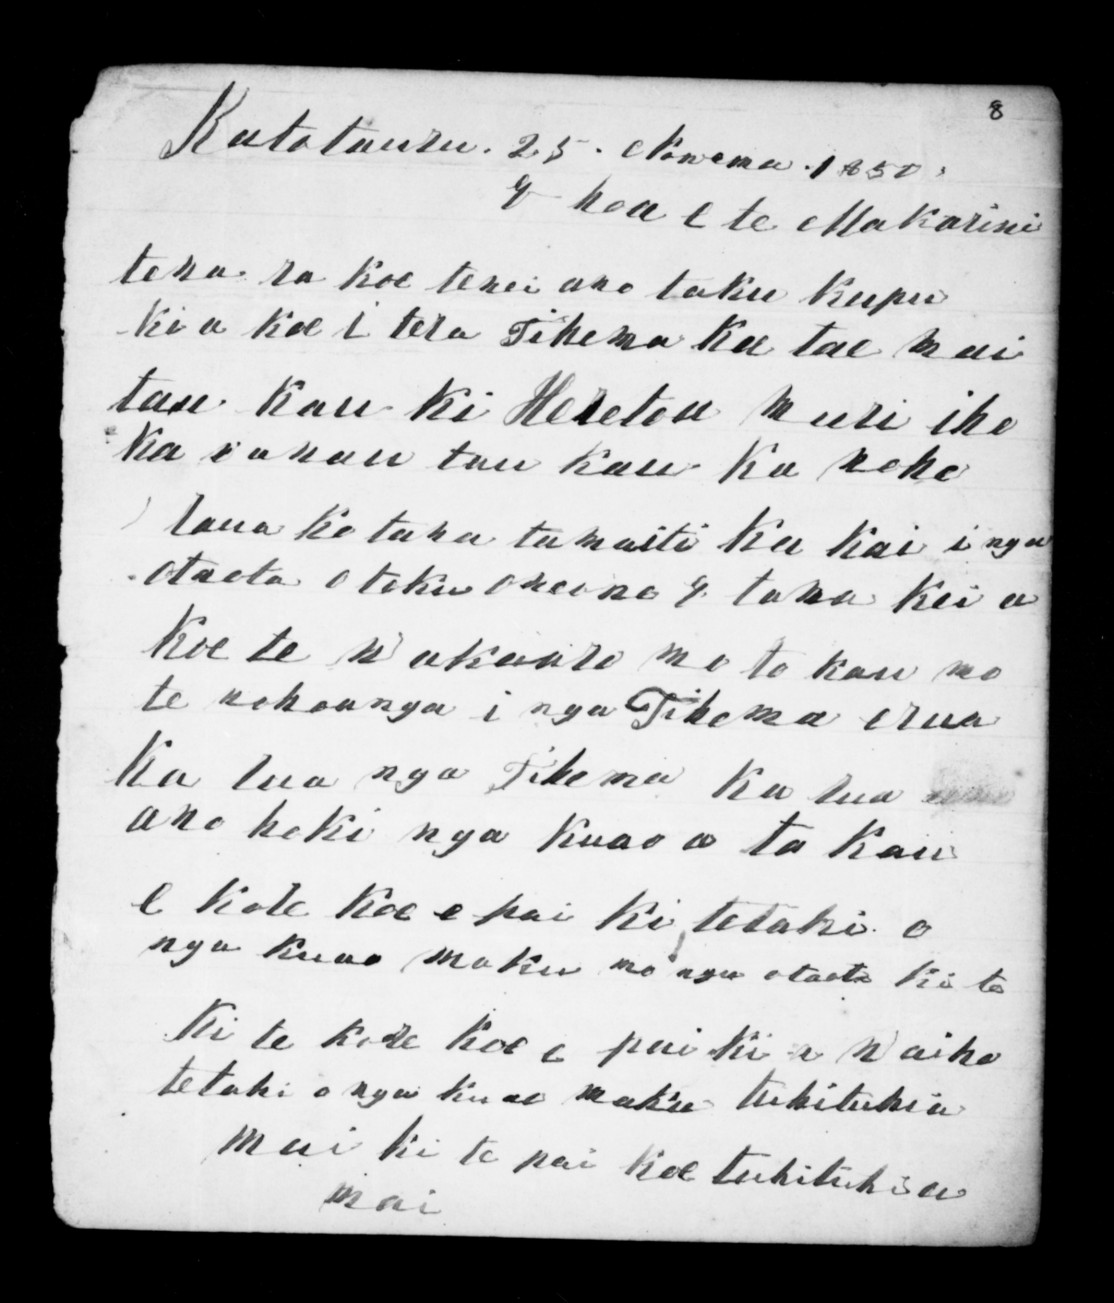 8
Katotauru. 25. Nowema. 1850.
E hoa e te Makarini
tena ra koe tenei ano taku kupu
ki a koe i tera Tihema ka tae mai
tau kau ki Heretou muri iho
ka wanau tau kau ka noho
raua ko tana tamaiti ka kai i nga
otaota o toku oneone E tama kei a
koe te w'akaaro mo to kau mo
te nohoanga i nga Tihema erua
ka rua nga Tihema ka rua
ano hoki nga kuao a to kau
e kore koe e pai ki tetahi o
nga kuao moku mo nga otaota ki te
ki te kore koe e pai kia w'aiho
tetahi o nga kuao maku tuhituhia
mai ki te pai koe tuhituhia
mai